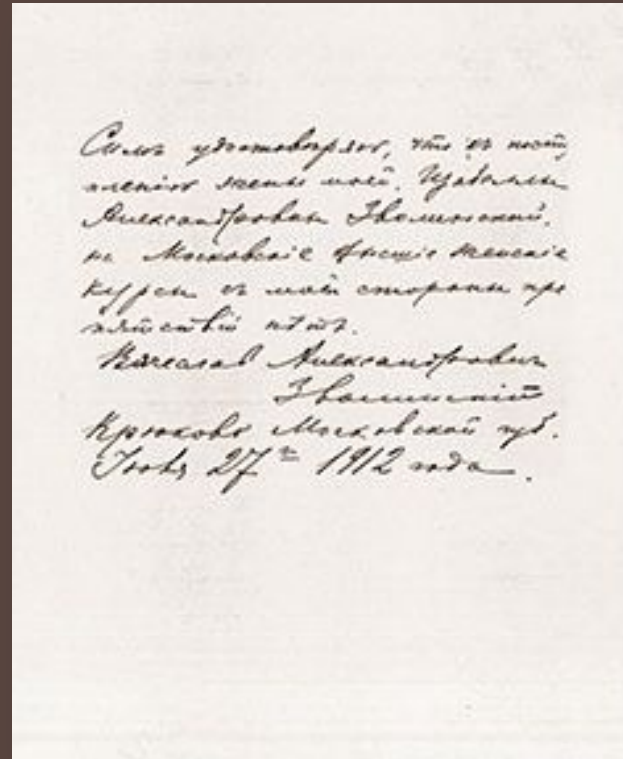 Симъ удостовѣряю, что къ посту
пленію жены моей, Изабеллы
Александровны Зволинской,
на Московскіе высшіе женскіе
курсы съ моей стороны пре
пятствій нѣтъ.
Вячеслав Александрович
Зволинскій
Крюково Московской губ.
27го 1912 года.